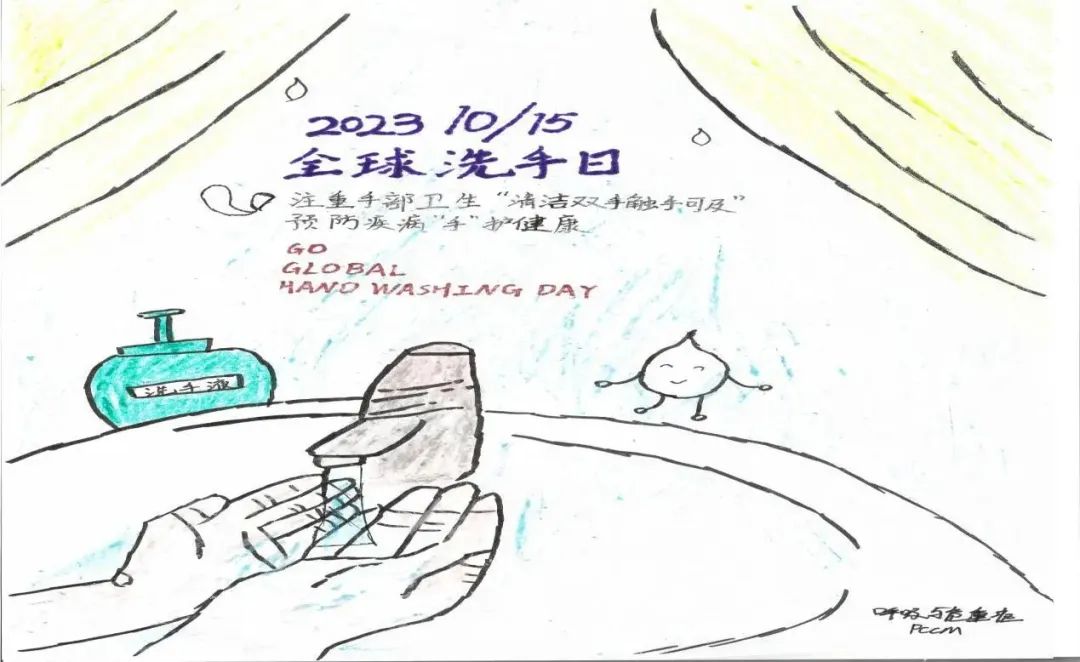 2023 10/15
全球洗手日
注重手部卫生“清洁双手触手可及”
预防疾病“手”护健康
GO
GLOBAL
HAND WASHING DAY
洗手液
呼吸与危重症
PCCM